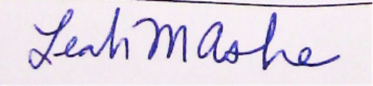 Leah M Ashe